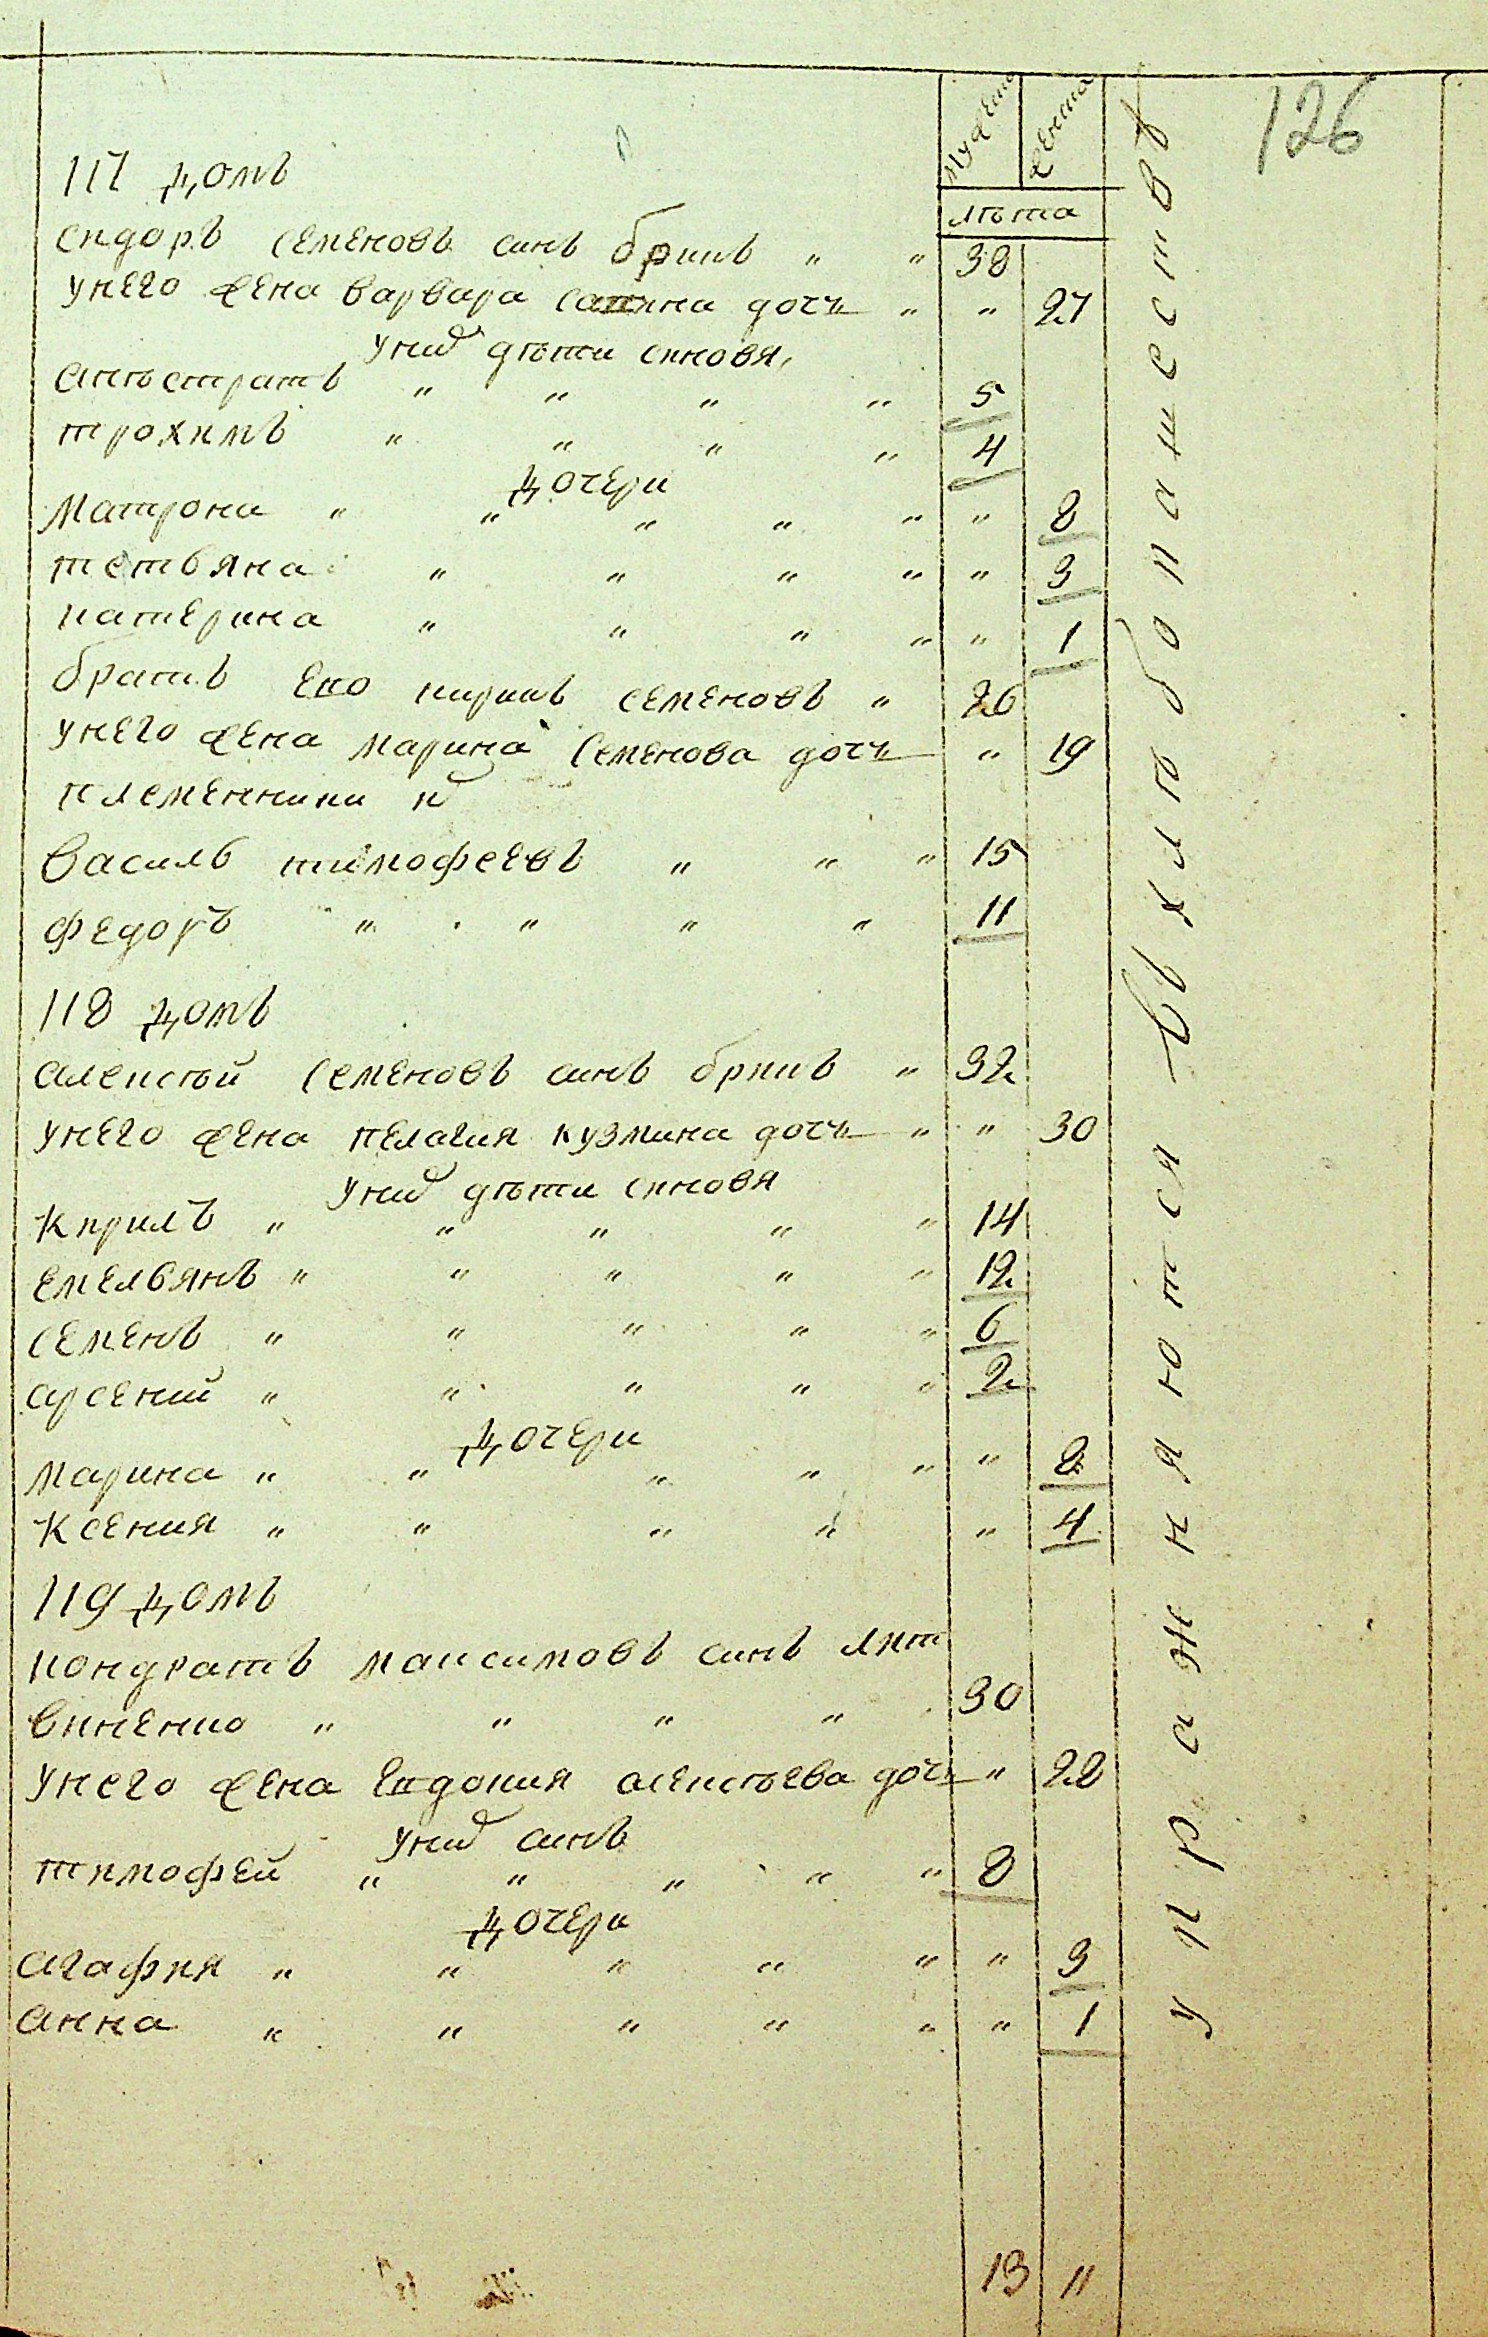 126
мужеска
женска
лѣта
117 домъ
сидоръ семеновъ синъ брикъ " " 38
унего жена варвара савина дочь " " 27
уних дѣти синовя
" " " " 5
трохимъ " " " " 4
дочери
матрона " " " " " " 8
тетьяна " " " " " 3
катерина " " " " " 1
братъ его кирикъ семеновъ " 26
унего жена марина семенова дочь " 19
племенники их
василь тимофеевъ " " " 15
федоръ " " " " 11
118 домъ
алексѣй семеновъ синъ брикъ " 32
унего жена пелагия кузмина дочь " " 30
уних дѣти синовя
кирилъ " " " " " 14
емельянъ " " " " " 12
семенъ " " " " " 6
арсений " " " " " 2
дочери
марина " " " " " " 8
ксения " " " " " 4
119 домъ
кондратъ максимовъ синъ лит
виненко " " " " 30
унего жена евдокия алексѣева дочь " 28
уних синъ
тимофей " " " " " 8
дочери
агафия " " " " " " 3
анна " " " " " " 1
13 11
упражняются въ хлѣбопашествѣ